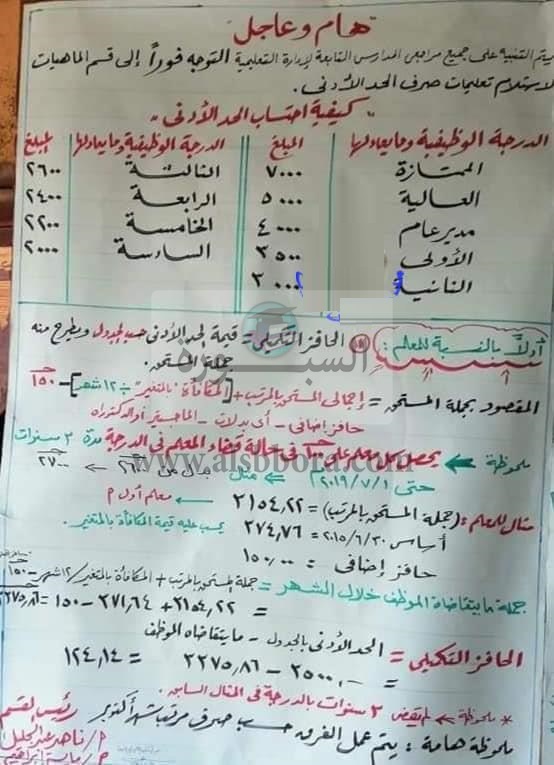 "هام وعاجل"
يتم التنبيه على جميع مراجعى المدارس التابعة لإدارة التعليمية التوجه فوراً إلى قسم الماهيات
لاستلام تعليمات صرف الحد الأدنى.
"كيفية احتساب الحد الأدنى"
الدرجة الوظيفية وما يعادلها المبلغ الدرجة الوظيفية وما يعادلها المبلغ
الممتازة ٧٠٠٠ الثالثة ٢٦٠٠
العالية ٥٠٠٠ الرابعة ٢٤٠٠
مدير عام ٤٠٠٠ الخامسة ٢٢٠٠
الأولى ٣٥٠٠ السادسة ٢٠٠٠
الثانية ٣٠٠٠
أولاً بالنسبة للمعلم: الحافز التكميلى = قيمة الحد الأدنى حسب الجدول ويطرح منه
جملة المستحق.
المقصود بجملة المستحق = إجمالى المستحق بالمرتب + [المكافأة "بالمتغير" ÷ ١٢ شهر] - ١٥٠
حافز إضافى - أى بدلات - الماجستير أو الدكتوراه
ملحوظة يحصل كل معلم على ١٠٠ فى حالة قضاء المعلم فى الدرجة مدة ٣ سنوات
حتى ٢٠١٩/٧/١ مثال بدل من ٢٦٠٠ ← ٢٧٠٠
السبورة
www.alsbbora.com
مثال للمعلم: (جملة المستحق بالمرتب) = ٢١٥٤,٢٢ ← معلم أول م
أساس ٢٠١٥/٦/٣٠ = ٢٧٤,٧٦ يحسب عليه قيمة المكافأة بالمتغير.
حافز إضافى = ١٥٠,٠٠
جملة ما يتقاضاه الموظف خلال الشهر = جملة المستحق بالمرتب + المكافأة بالمتغير/١٢ شهر - ١٥٠
= ٢١٥٤,٢٢ + ٢٧١,٦٤ - ١٥٠ = ٢٢٧٥,٨٦
الحافز التكميلى = الحد الأدنى بالجدول - ما يتقاضاه الموظف
= ٢٥٠٠,- - ٢٢٧٥,٨٦ = ١٢٤,١٤
* ملحوظة ← لم يقض ٣ سنوات بالدرجة فى المثال السابق.
ملحوظة هامة: يتم عمل الفرق حسب صرف مرتب شهر أكتوبر
رئيس القسم
أ/ ناهد عبد الجليل